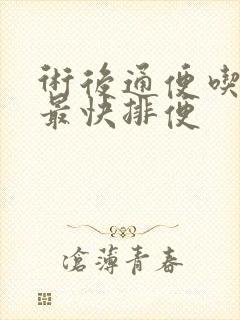 術後通便喫
最快排便
滄薄青春